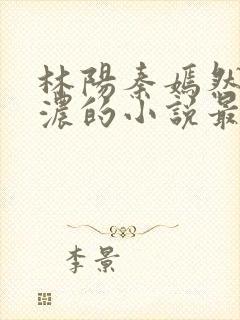 林陽秦嫣然
濃的小說最
李景